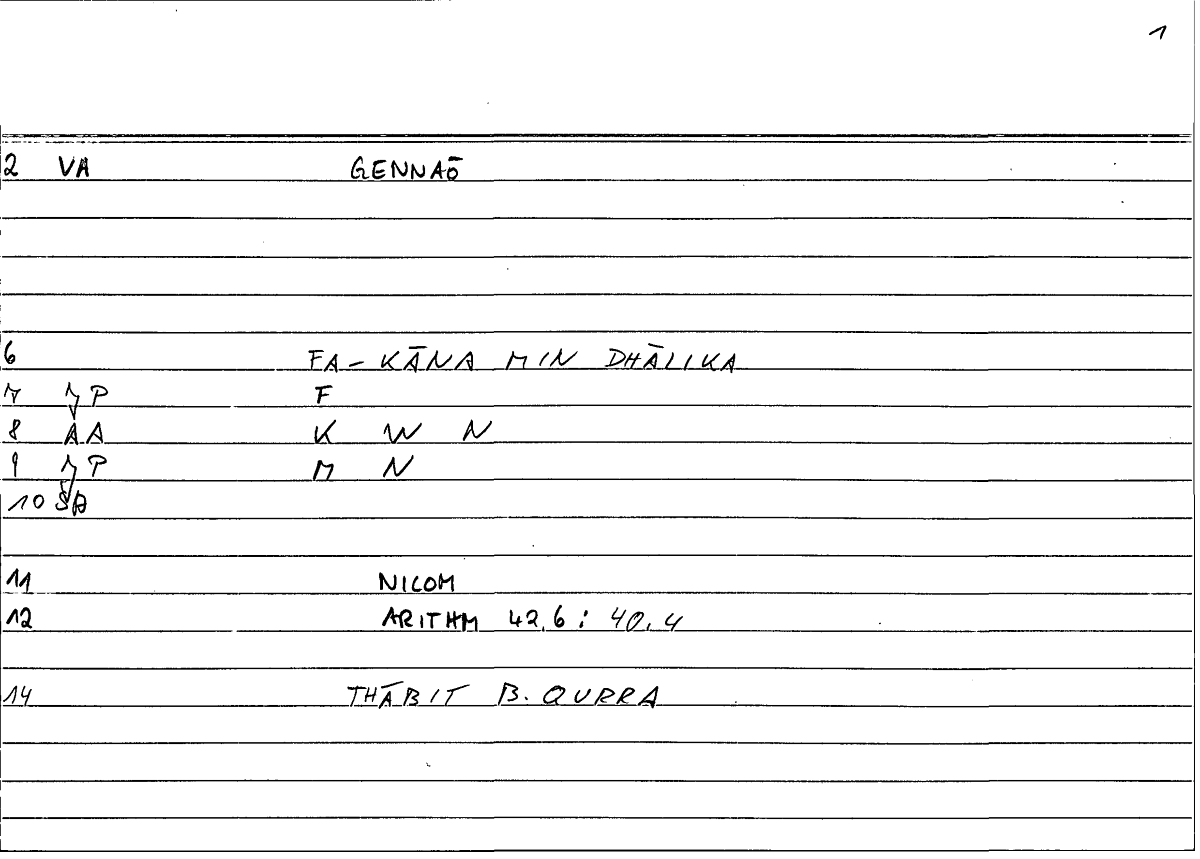 1
2 VA GENNAŌ
6 FA-KĀNA MIN DHĀLIKA
7 P F
8 AA K W N
9 P M N
10 ŠA
11 NICOM
12 ARITHM 42,6 : 40,4
14 THĀBIT B. QURRA